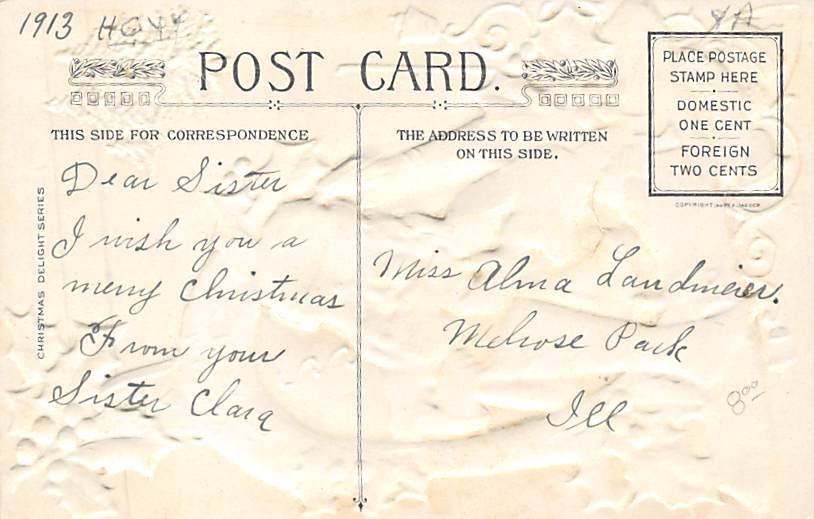 1913
POST CARD.
PLACE POSTAGE
STAMP HERE
DOMESTIC
ONE CENT
FOREIGN
TWO CENTS
THIS SIDE FOR CORRESPONDENCE
THE ADDRESS TO BE WRITTEN
ON THIS SIDE.
CHRISTMAS DELIGHT SERIES
COPYRIGHT
Dear Sister
I wish you a
merry Christmas
From your
Sister Clara
Miss Alma Landmeier.
Melrose Park
Ill
800